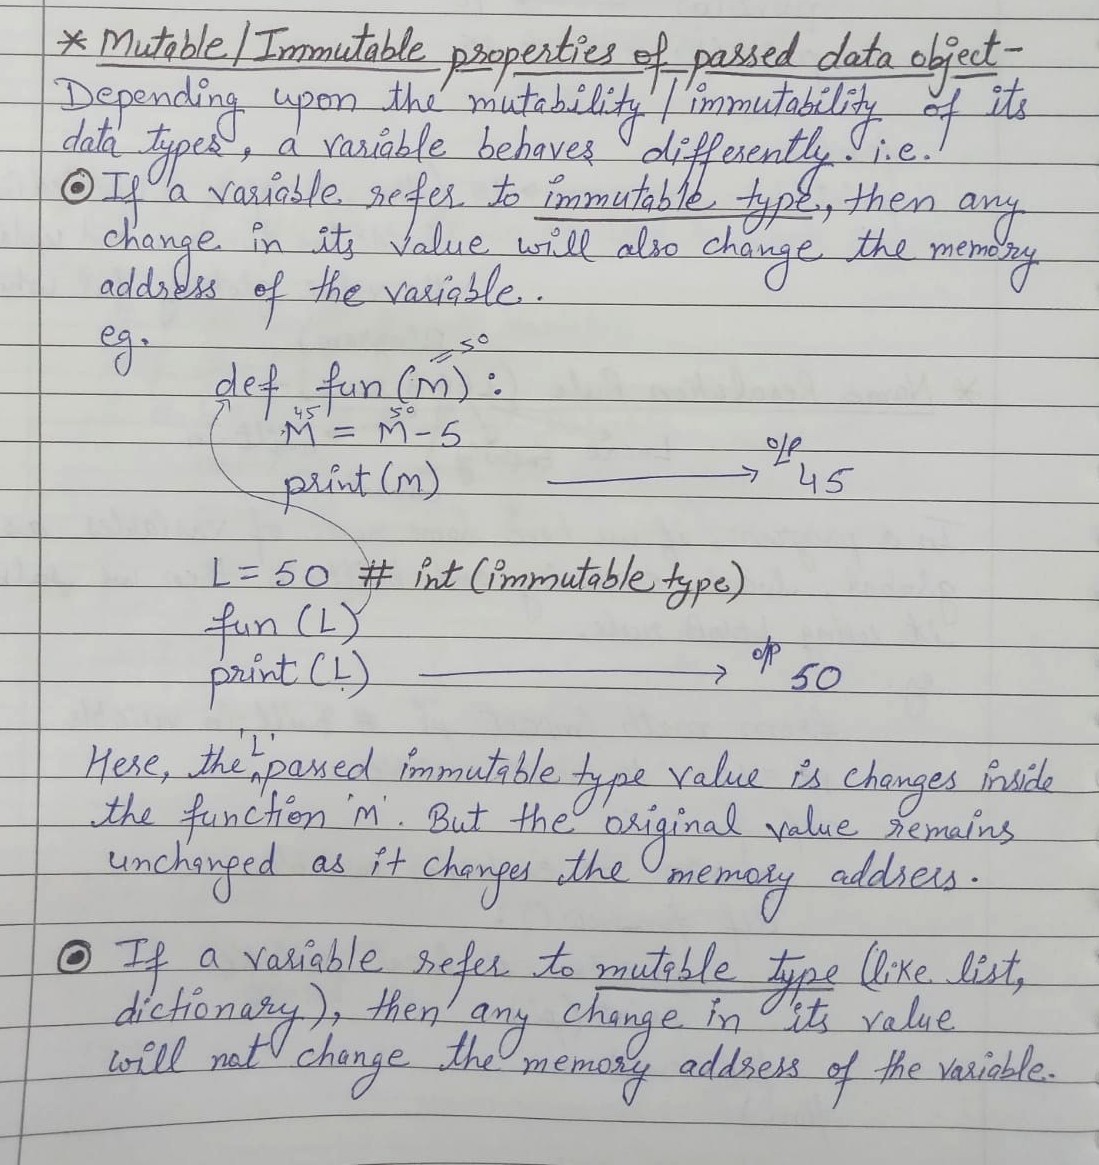 * Mutable/Immutable properties of passed data object-
Depending upon the mutability/immutability of its
data types, a variable behaves differently. i.e.
If a variable refer to immutable type, then any
change in its value will also change the memory
address of the variable.
eg.
= 50
def fun (M) :
45 50
M = M - 5
print (M) → o/p 45
L = 50 # int (immutable type)
fun (L)
print (L) → o/p 50
'L'
Here, the ^ passed immutable type value is changes inside
the function 'M'. But the original value remains
unchanged as it changes the memory address.
If a variable refer to mutable type (like list,
dictionary), then any change in its value
will not change the memory address of the variable.